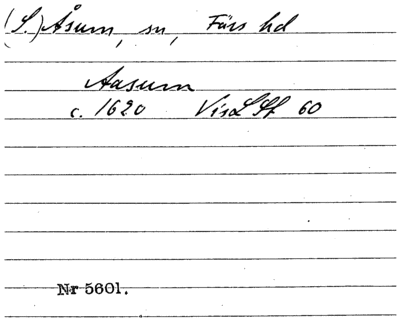 (S.) Åsum, sn, Färs hd
Aasum
c. 1620 VisLSt 60
Nr 5601.